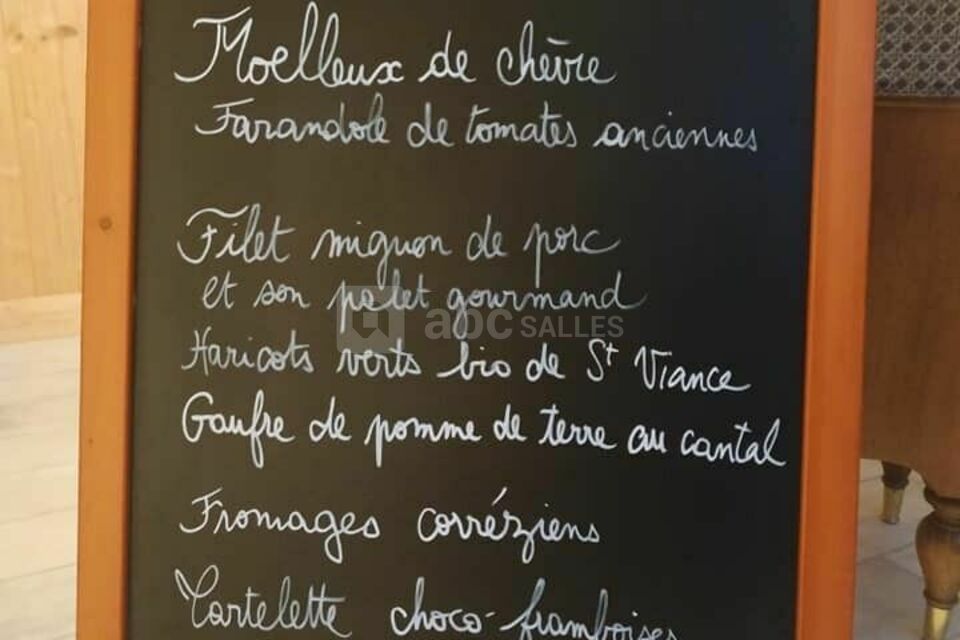 Moelleux de chèvre
Farandole de tomates anciennes
Filet mignon de porc
et son palet gourmand
abc SALLES
Haricots verts bio de St Viance
Gaufre de pomme de terre au cantal
Fromages corréziens
Tartelette choco-framboises